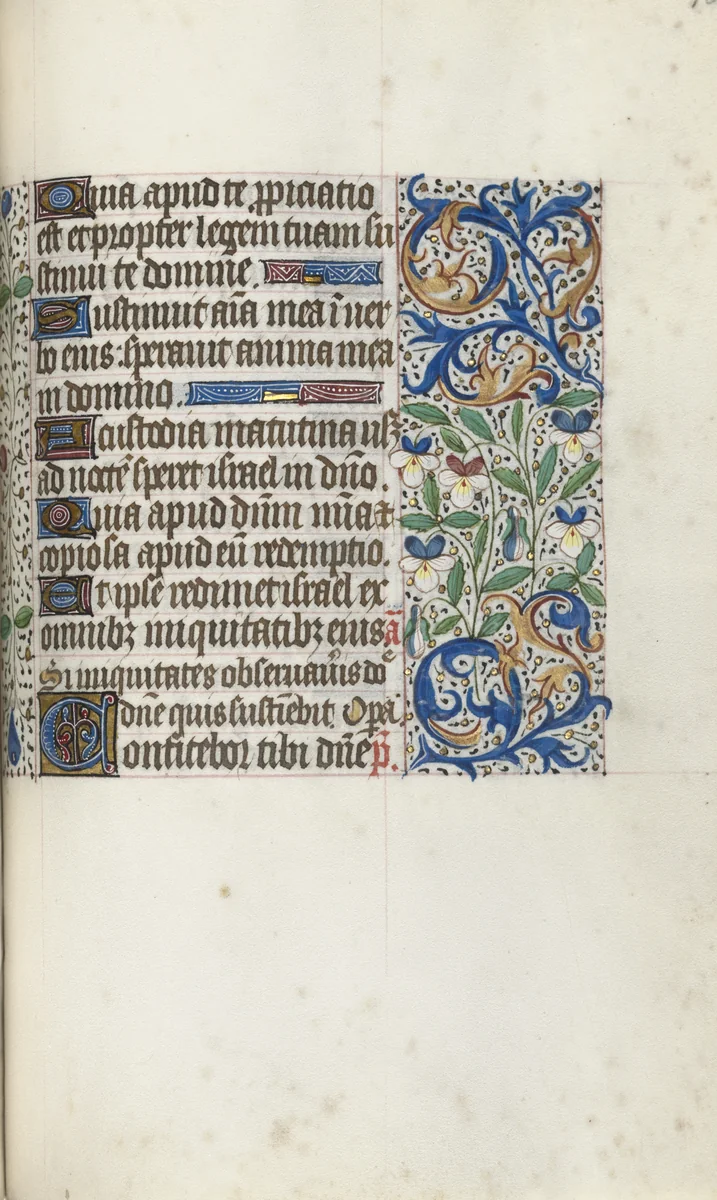 Quia apud te ꝓpiciatio
est et propter legem tuam su
stinui te domine.
Sustinuit aīa mea ī ver
bo eius: speravit anima mea
in domino.
A custodia matutina usqꝫ
ad noctē speret israel in dn̄o.
Quia apud dn̄m mīa et
copiosa apud eū redemptio.
Et ipse redimet israel ex
omnibꝫ iniquitatibꝫ eius ā
Si iniquitates observav̄is do
dn̄e quis sustīebit. Opa
Confitebor tibi dn̄e p̄.